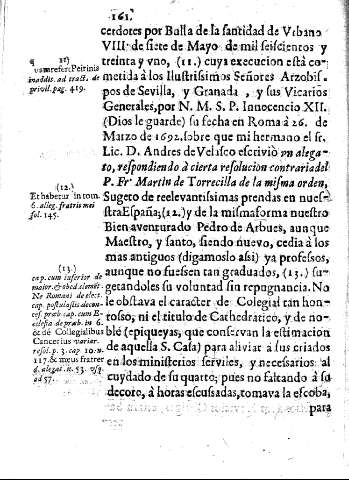 161.
cerdotes por Bulla de la santidad de Vrbano
VIII. de siete de Mayo de mil seiscientos y
treinta y vno, (11.) cuya execucion està co-
metida à los Ilustrissimos Señores Arzobis-
pos de Sevilla, y Granada, y sus Vicarios
Generales, por N. M. S P. Innocencio XII.
(Dios le guarde) su fecha en Roma à 26. de
Marzo de 1692. sobre que mi hermano el sr.
Lic. D. Andres de Velisco escriviò vn alega-
to, respondiendo à cierta resolucion contraria del
P. Fr Martin de Torrecilla de la misma orden,
Sugeto de reelevantissimas prendas en nues-
tra España; (12.) y de la misma forma nuestro
Bien aventurado Pedro de Arbues, aunque
Maestro, y santo, siendo nuevo, cedia à los
mas antiguos (digamoslo assi) ya profesos,
aunque no fuessen tan graduados, (13.) su-
getandoles su voluntad sin repugnancia. No
le obstava el caracter de Colegial tan hon-
roso, ni el titulo de Cathedratico, y de no-
blè (epiqueyas, que conservan la estimacion
de aquella S. Casa) para aliviar à sus criados
en los ministerios serviles, y necessarios al
cuydado de su quarto; pues no faltando à su
decoro, à horas escusadas, tomava la escoba,
para
(11)
vam refert Peirinis
in addit. ad tract. de
privil. pag. 419.
(12.)
Et habetur in tom.
6. alleg. fratris mei
fol. 145.
(13.)
cap. cum inferior de
maior. & obed. clement.
Ne Romani de elect.
cap. postulastis de con-
ces. præb cap. cum E-
clesia de præb. in 6.
& de Collegialibus
Cancerius variar.
resol. p. 3. cap 10. n.
117. & meus frater
d. alegat. n. 53. vsq.
ad 57.